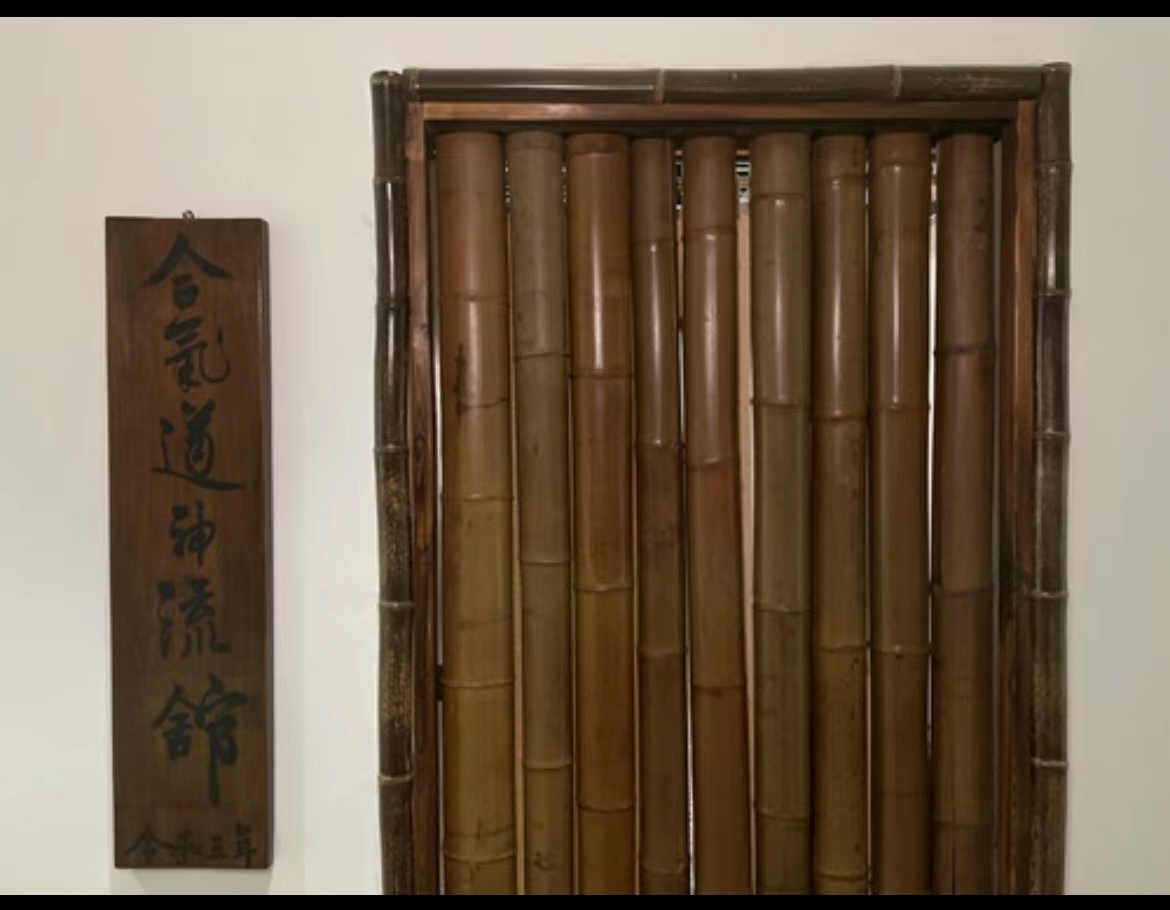 合氣道神流舘
令和五年